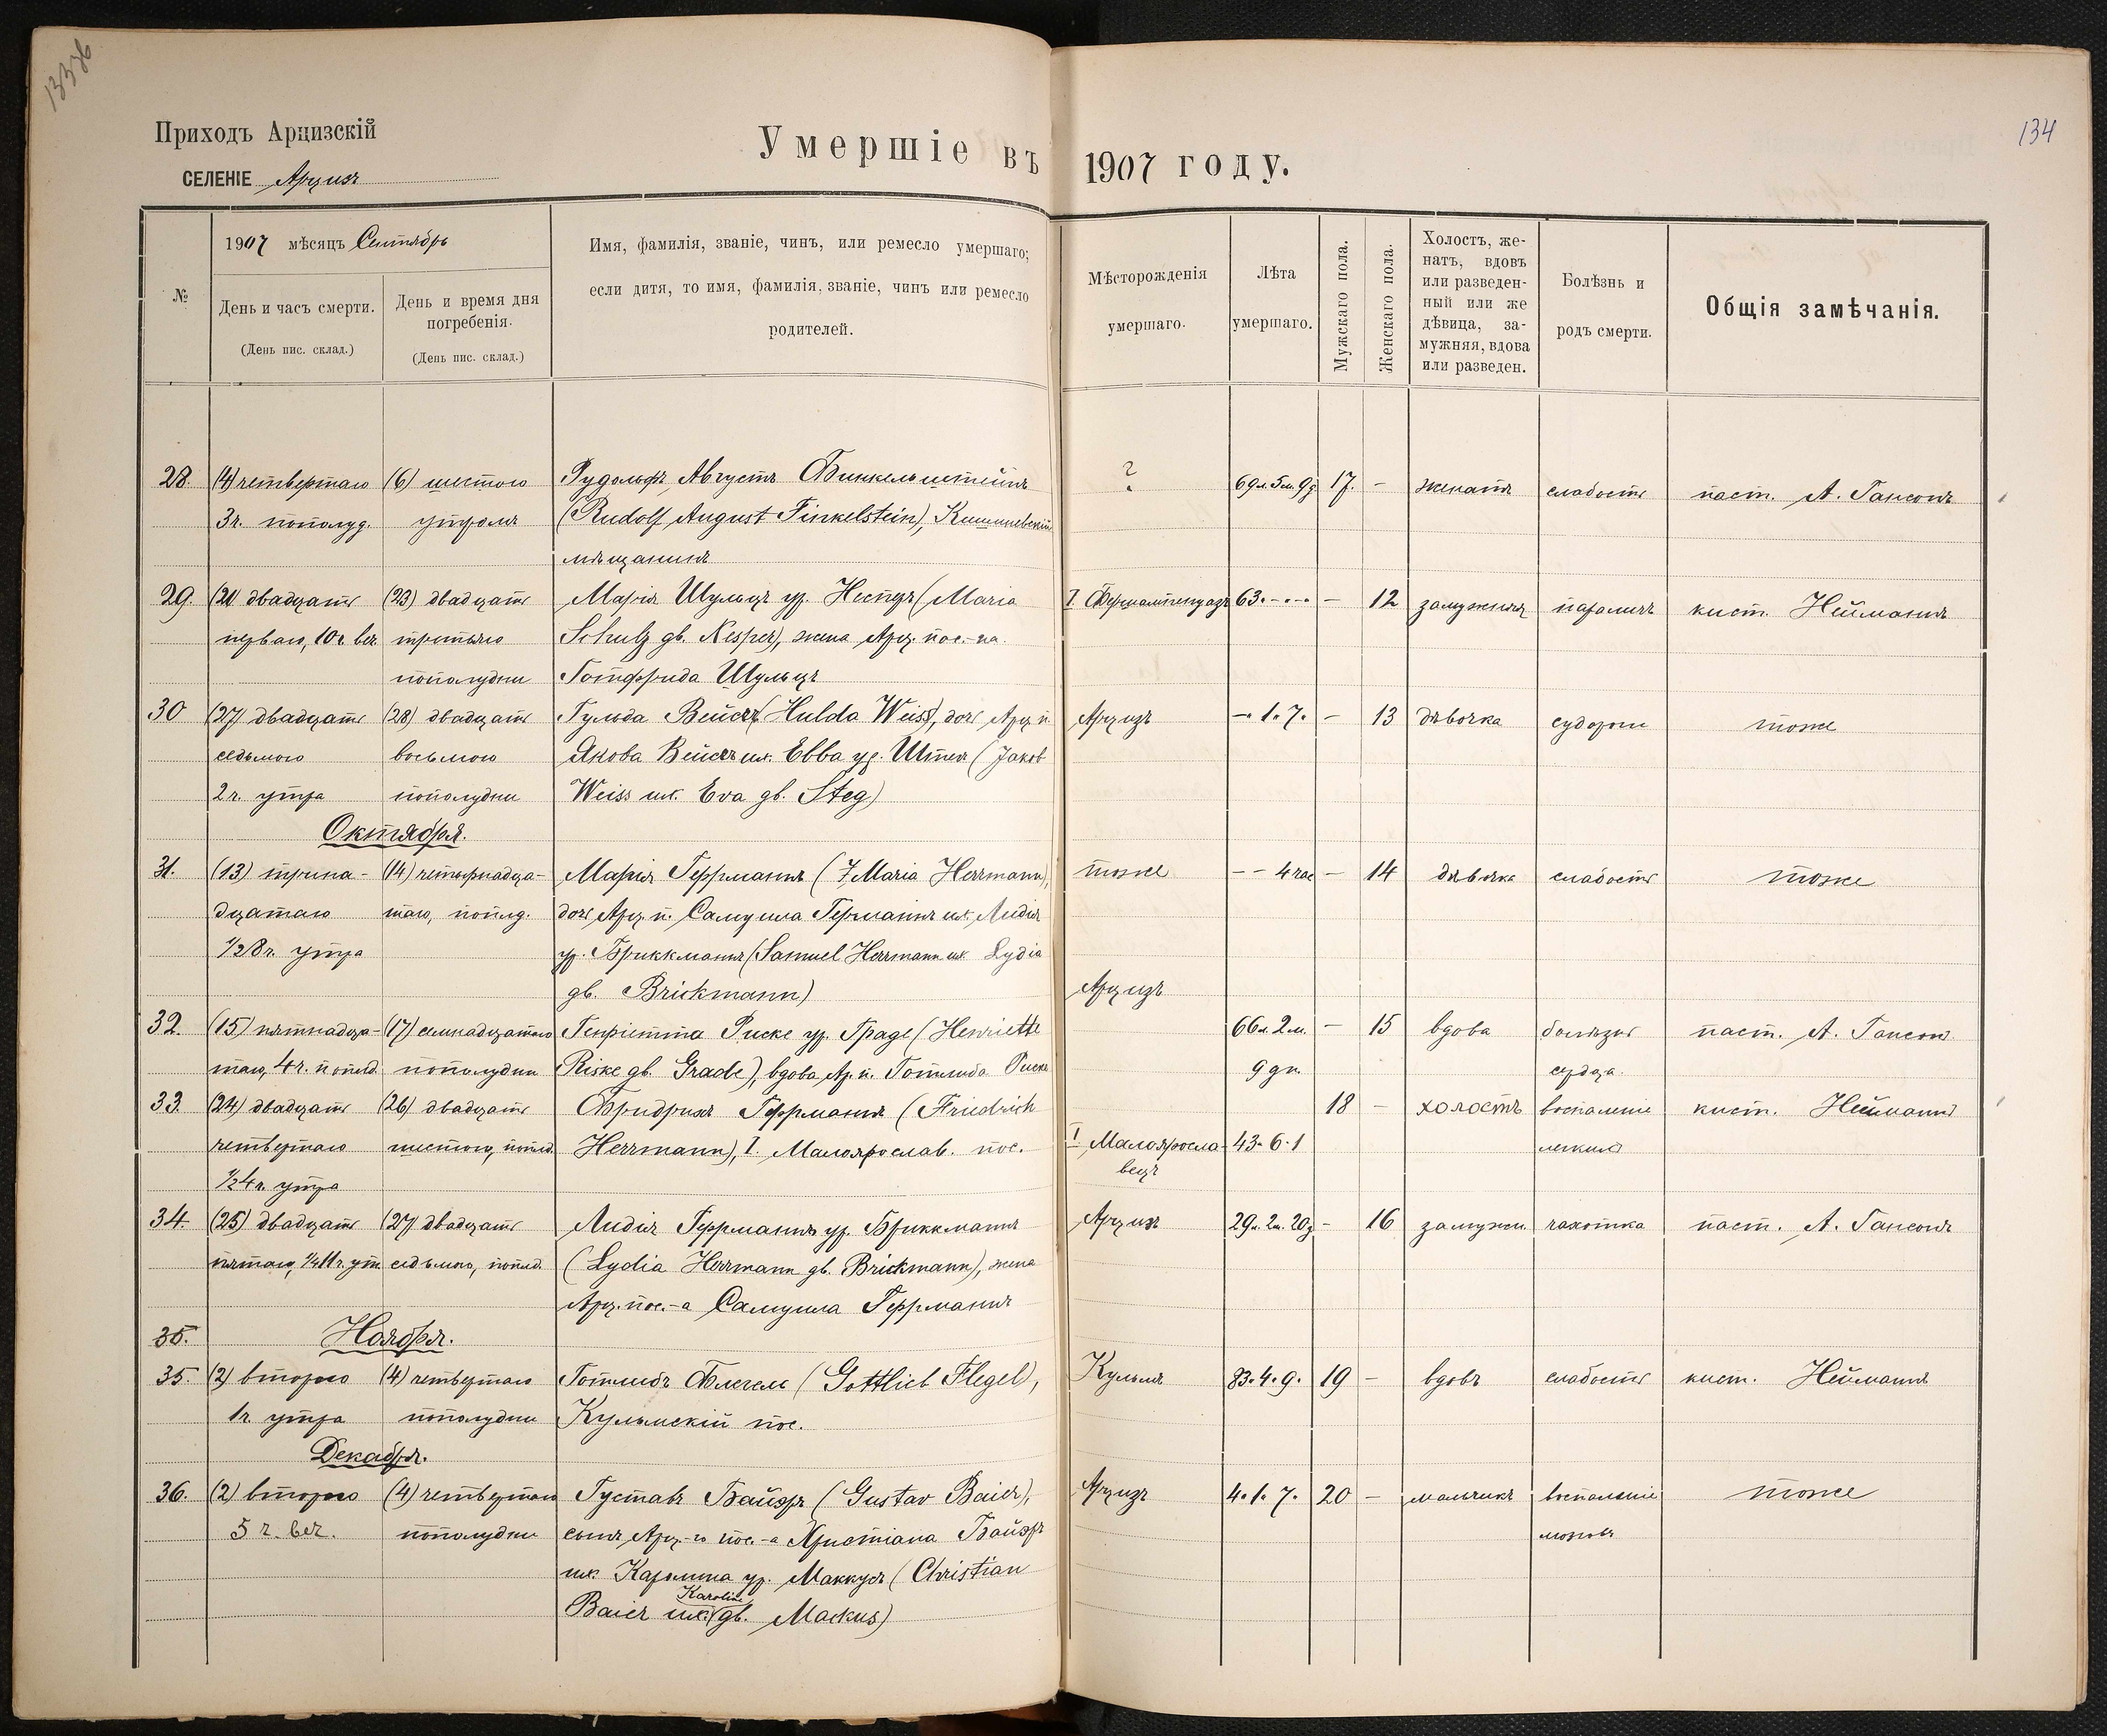 133об
134
Приходъ Арцизскій
СЕЛЕНІЕ Арцизъ
Умершіе въ 1907 году.
№
1907 мѣсяцъ Сентябрь
День и часъ смерти.
(День пис. склад.)
День и время дня
погребенія.
(День пис. склад.)
Имя, фамилія, званіе, чинъ, или ремесло умершаго;
если дитя, то имя, фамилія, званіе, чинъ или ремесло
родителей.
Мѣсторожденія
умершаго.
Лѣта
умершаго.
Мужскаго пола.
Женскаго пола.
Холостъ, же-
натъ, вдовъ
или разведен-
ный или же
дѣвица, за-
мужняя, вдова
или разведен.
Болѣзнь и
родъ смерти.
Общія замѣчанія.
28. (4) четвертаго (6) шестого Рудольфъ Августъ Финкельштейнъ ? 69л. 5м. 9д. 17. - женатъ слабость паст. А. Гансонъ
3ч. пополуд. утромъ (Rudolf August Finkelstein), Кишиневскій
мѣщанинъ
29. (21) двадцать (23) двадцать Марія Шульцъ ур. Неспръ (Maria I Фершампенуазъ 63.-.-. - 12 замужняя параличъ кист. Нейманнъ
перваго, 10ч. веч. третьяго Schulz gb. Nesper), жена Арц. пос.-на
пополудни Готфрида Шульцъ
30 (27) двадцать (28) двадцать Гульда Вейссъ (Hulda Weiss), дочь Арц. п. Арцизъ -. 1. 7. - 13 дѣвочка судороги тоже
седьмого восьмого Якова Вейссъ и ж. Евва ур. Штегъ (Jakob
2ч. утра пополудни Weiss и ж. Eva gb. Steg)
Октября.
31. (13) трина- (14) четырнадца- Марія Геррманнъ (Maria Herrmann), тоже - - 4 час - 14 дѣвочка слабость тоже
дцатаго таго, попод. дочь Арц. п. Самуила Германнъ и ж. Лидія
1/2 8ч. утра ур. Бриккманнъ (Samuel Herrmann и ж. Lydia
gb. Brickmann)
Арцизъ
32. (15) пятнадца- (17) семнадцатаго Генріетта Риске ур. Граде (Henriette 66л. 2м. - 15 вдова болѣзнь паст. А. Гансонъ
таго, 4ч. попод. пополудни Riske gb. Grade), вдова Ар. п. Готлиба Риске 9 дн. сердца.
33. (24) двадцать (26) двадцать Фридрихъ Геррманнъ (Friedrich 18 - холостъ воспаленіе кист. Нейманнъ
четвертаго шестого, попод. Herrmann), I. Малоярослав. пос. I Малояросла- 43. 6. 1 легкихъ
вецъ
1/2 4ч. утра
34. (25) двадцать (27) двадцать Лидія Геррманнъ ур. Бриккманнъ Арцизъ 29л. 2м. 20д. - 16 замужн. чахотка паст. А. Гансонъ
пятаго, 1/4 11ч. ут. седьмого, попод. (Lydia Herrmann gb. Brickmann), жена
Арц. пос.-а Самуила Геррманнъ
35. Ноября.
35. (2) второго (4) четвертаго Готлибъ Флегель (Gottlieb Flegel), Кульмъ 83. 4. 9. 19 - вдовъ слабость кист. Нейманнъ
1ч. утра пополудни Кульмскій пос.
Декабря.
36. (2) второго (4) четвертаго Густавъ Байэръ (Gustav Baier), Арцизъ 4. 1. 7. 20 - мальчикъ воспаленіе тоже
5 ч. веч. пополудни сынъ Арц-го пос.-а Христіана Байэръ мозговъ
и ж. Каролина ур. Маккусъ (Christian
Karolina
Baier и ж. gb. Mackus)